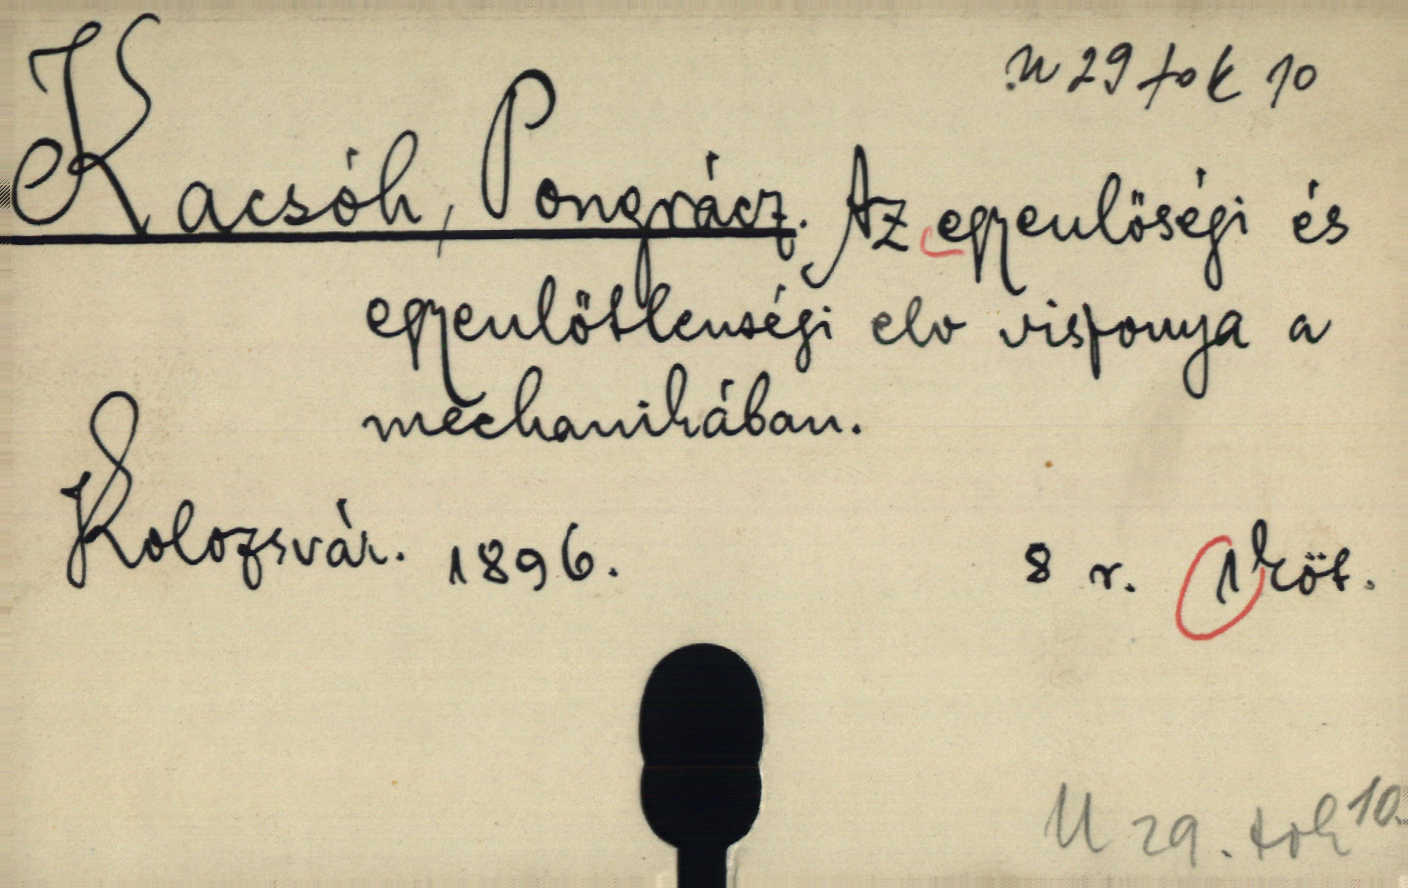 U 29 tok 10
Kacsóh, Pongrácz. Az egyenlőségi és
egyenlőtlenségi elv viszonya a
mechanikában.
Kolozsvár. 1896. 8 r. 1 köt.
U 29. tok 10.